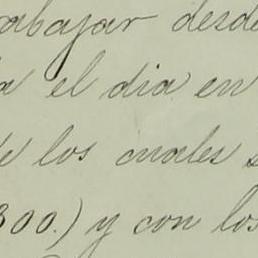 trabajar desde
a el dia en
de los cuales s
300.) y con los